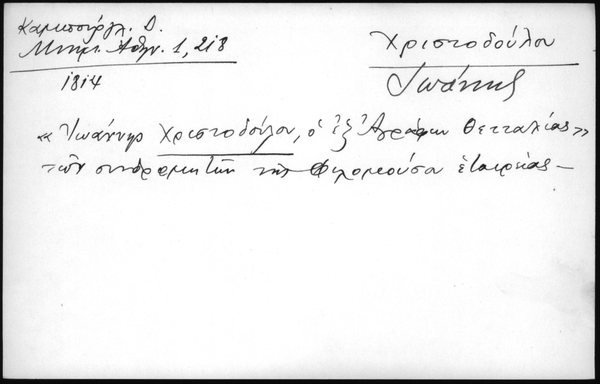 Καμπούρογλ. Δ.
Μνημ. Αθην. 1, 218
1814
Χριστοδούλου
Ιωάννης
«Ιωάννης Χριστοδούλου, ὁ ἐξ Ἀγράφων Θετταλίας»
τῶν συνδρομητῶν τῆς Φιλομούσου ἑταιρείας —